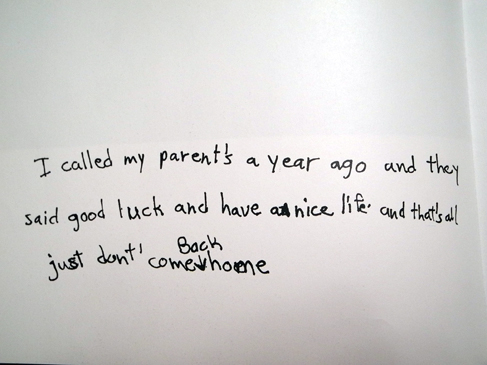 I called my parent's a year ago and they
said good luck and have a nice life. and that's all
just dont' come Back home